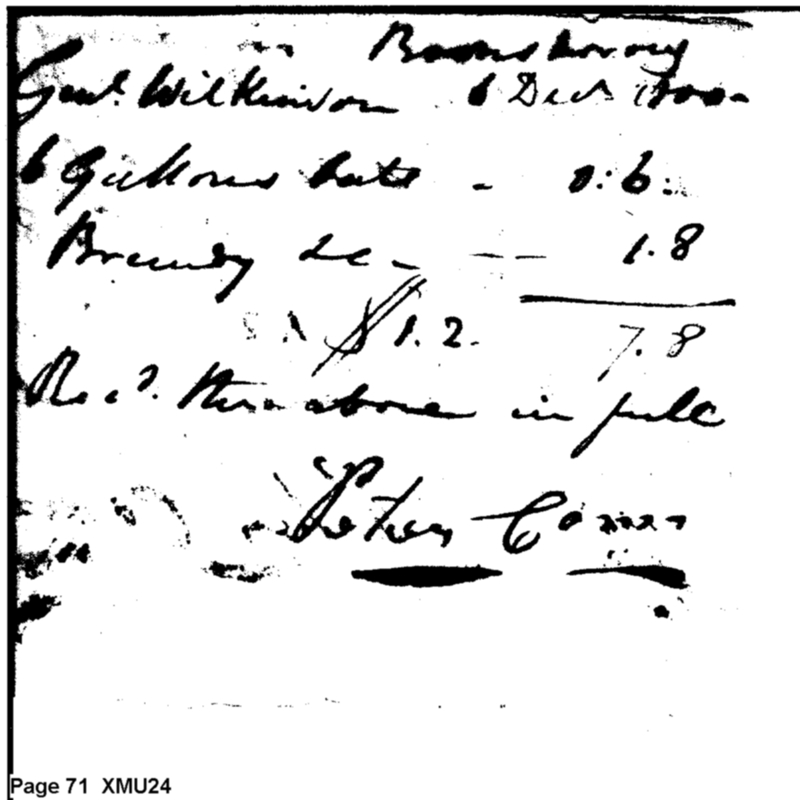 Boonsborroug
Genl. Wilkinson 6 Decr. 1800
6 Gallons oats - 0:6:
Brandy &c - -- 1.8
$1.2. 7.8
Recd. the above in full
Peter
Page 71 XMU24